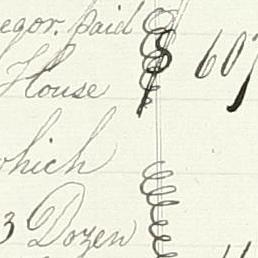 egor. paid 607
House
which
3 Dozen